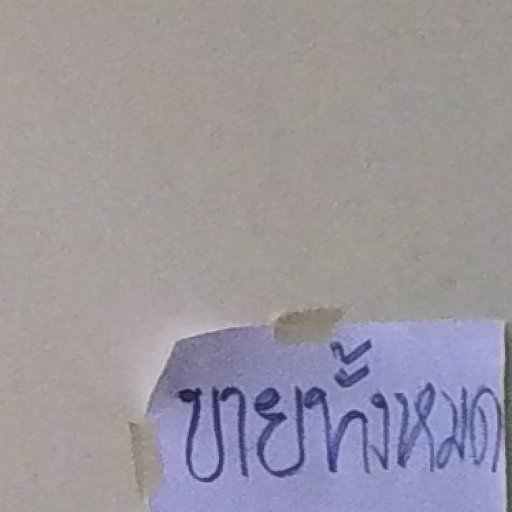 ขายทั้งหมด